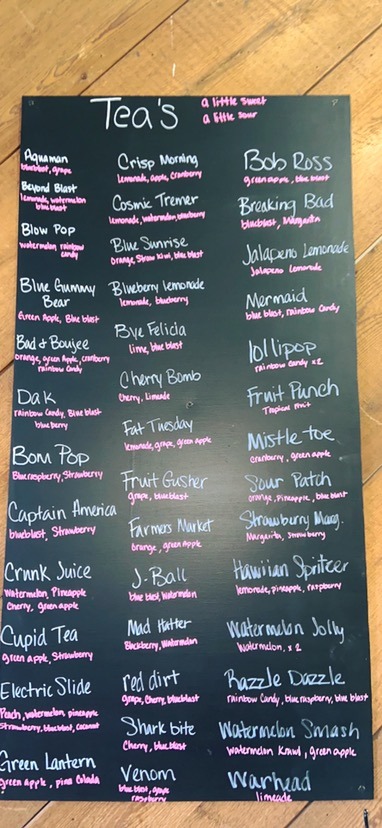 Tea's
a little sweet
a little sour
Aquaman
blueblast, grape
Beyond Blast
lemonade, watermelon
blue blast
Blow Pop
watermelon rainbow
candy
Blue Gummy
Bear
Green Apple, Blue blast
Bad & Boujee
orange, green Apple, cranberry
rainbow Candy
Dak
rainbow Candy, Blue blast
blueberry
Bom Pop
Blue raspberry, Strawberry
Captain America
blueblast, Strawberry
Crunk Juice
Watermelon, Pineapple
Cherry, Green apple
Cupid Tea
green apple, Strawberry
Electric Slide
Peach, watermelon, pineapple
Strawberry, blueblast, coconut
Green Lantern
Green Apple, pina Colada
Crisp Morning
Lemonade, apple, Cranberry
Cosmic Tremer
lemonade, watermelon, blueberry
Blue Sunrise
Orange, Straw Kiwi, blue blast
Blueberry lemonade
lemonade, blueberry
Bye Felicia
lime, blue blast
Cherry Bomb
Cherry, Limade
Fat Tuesday
lemonade, grape, green apple
Fruit Gusher
grape, blueblast
Farmers Market
Orange, green Apple
J-Ball
blue blast, Watermelon
Mad Hatter
Blackberry, Watermelon
red dirt
grape, Cherry, blueblast
Shark bite
Cherry, blue blast
Venom
blue blast, grape
raspberry
Bob Ross
green apple, blue blast
Breaking Bad
blueblast, Margarita
Jalapeno Lemonade
Jalapeno Lemonade
Mermaid
blue blast, rainbow Candy
lollipop
rainbow Candy x2
Fruit Punch
Tropical Fruit
Mistle toe
Cranberry, green apple
Sour Patch
orange, Pineapple, blue blast
Strawburry Marg.
Margarita, Strawberry
Hawiian Spritzer
lemonade, pineapple, raspburry
Watermelon Jolly
Watermelon, x 2
Razzle Dazzle
rainbow Candy, blue raspberry, blue blast
Watermelon Smash
Watermelon Krawl, green apple
Warhead
limeade